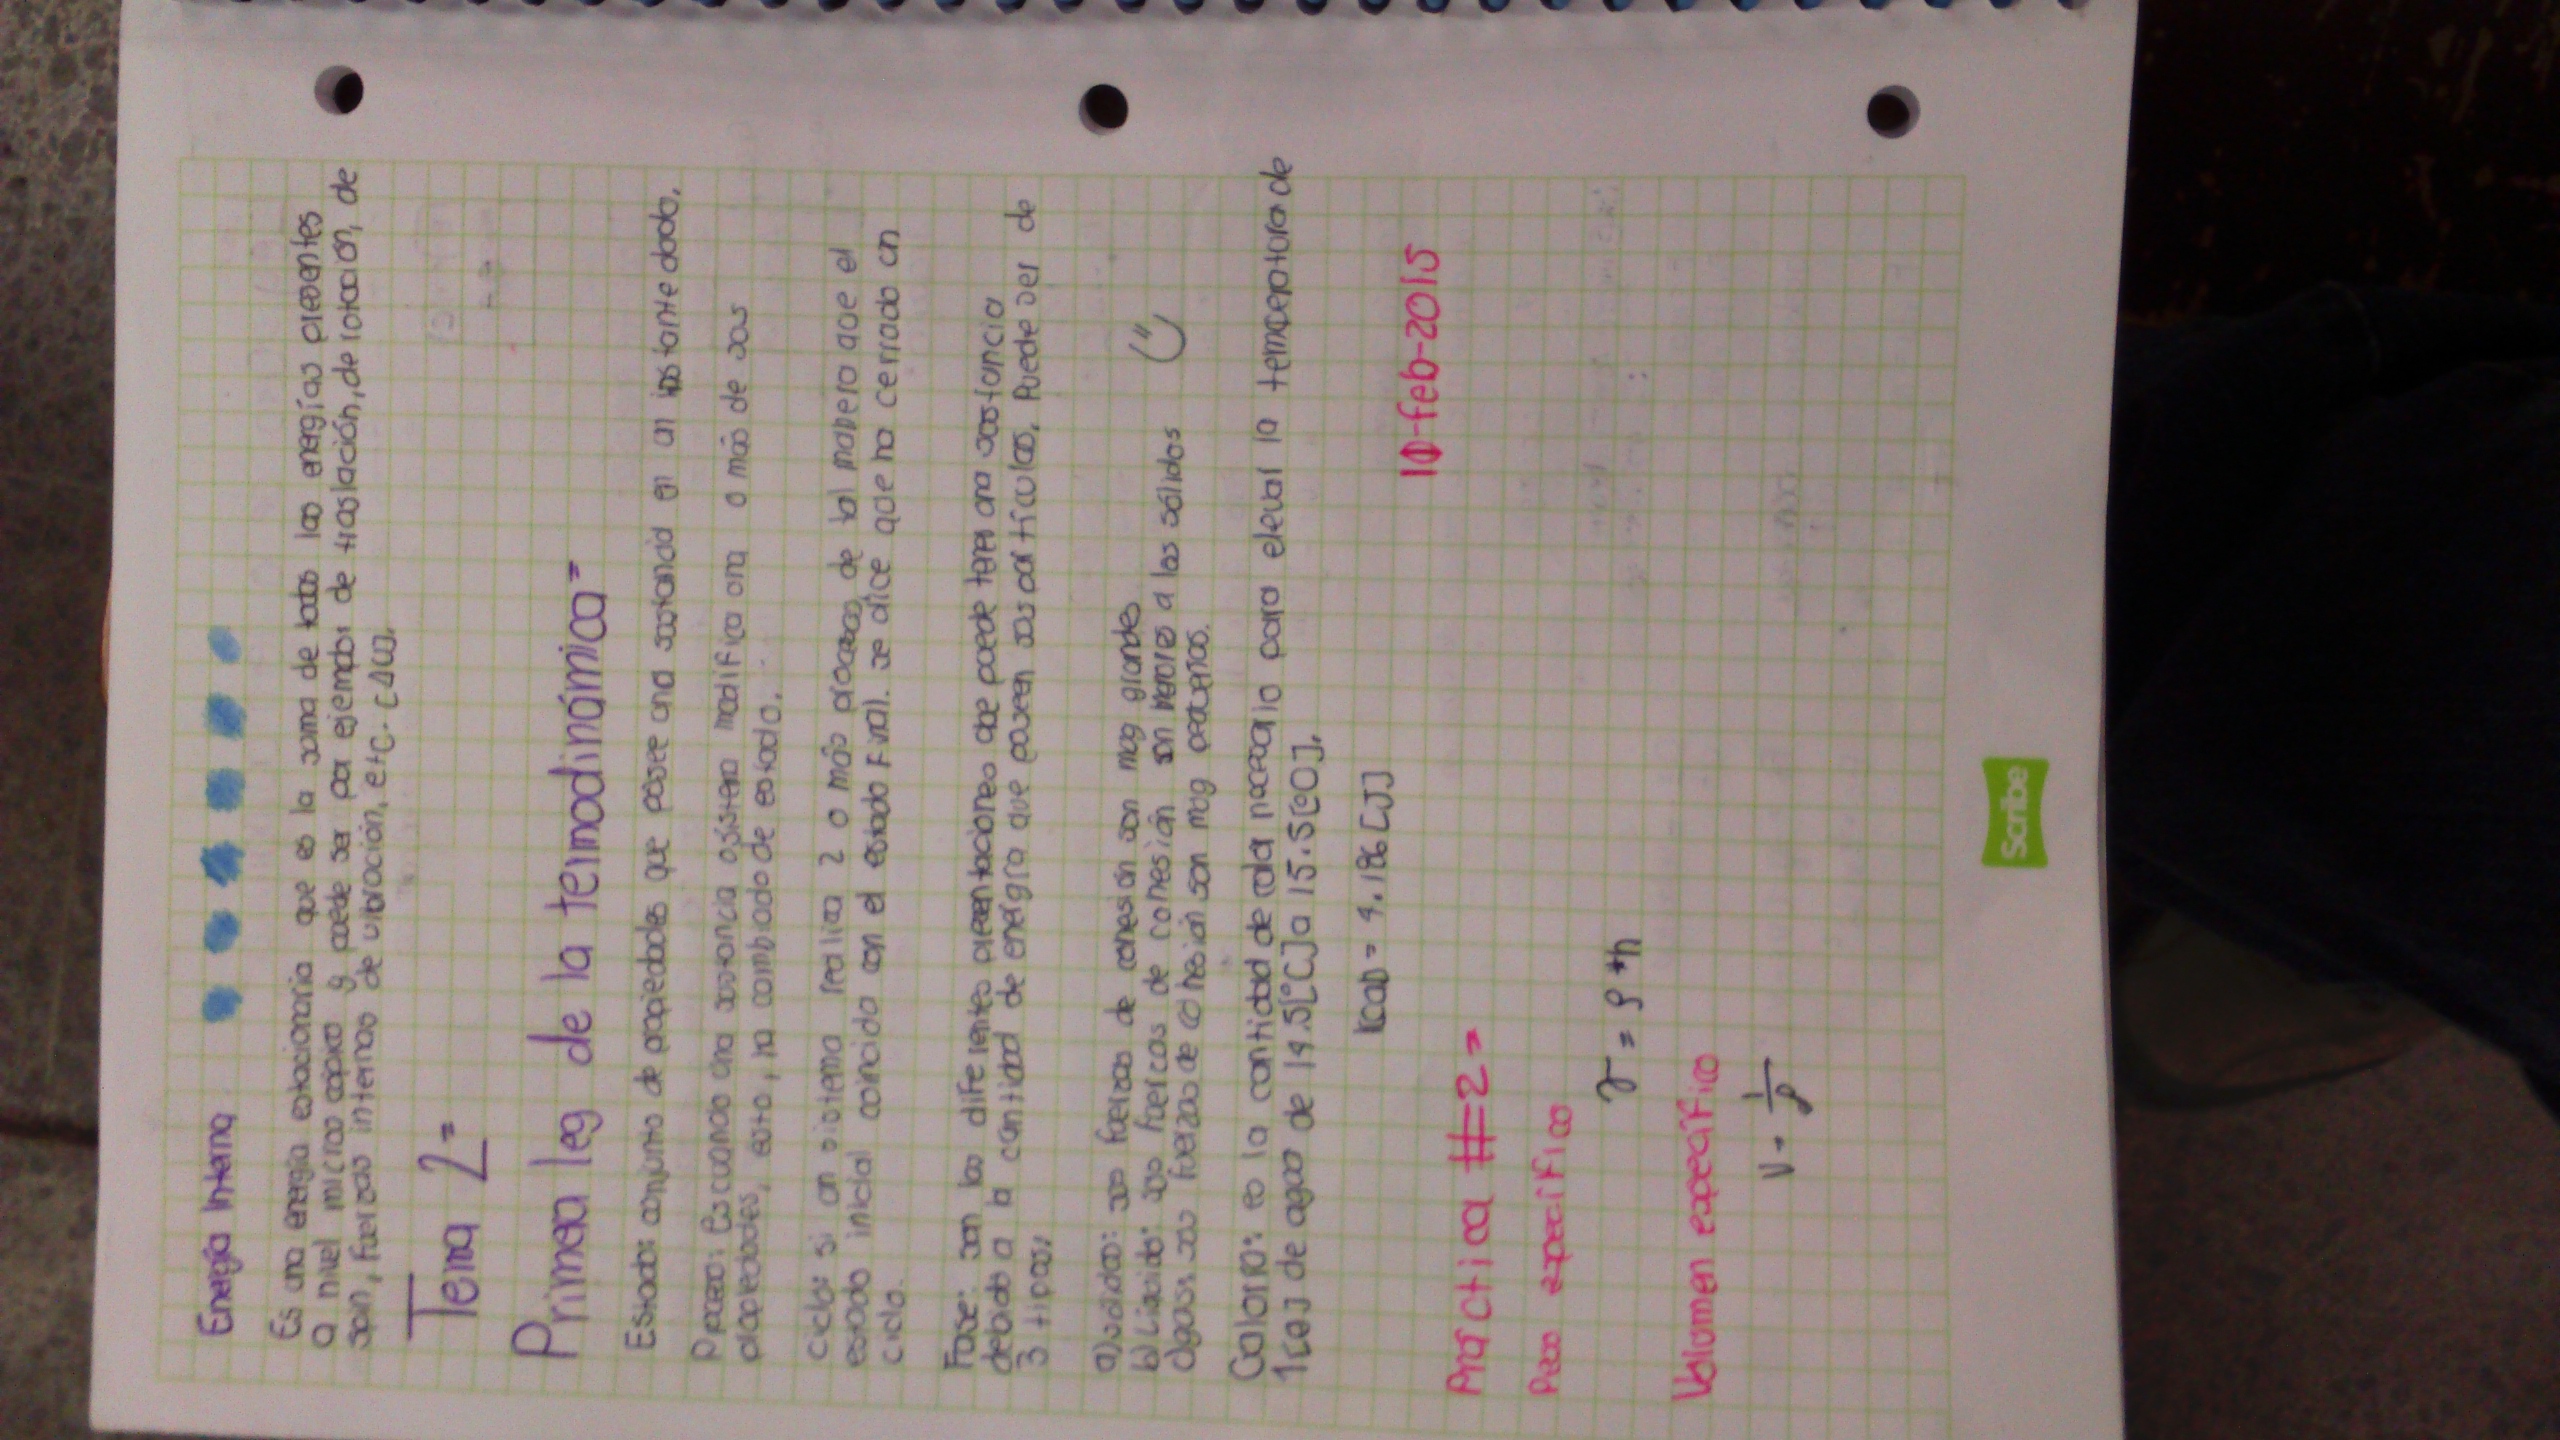 Energía Interna
Es una energía estacionaria que es la suma de todas las energías presentes
a nivel microscópico y puede ser por ejemplo: de traslación, de rotación, de
spin, fuerzas internas de vibración, etc. [ΔU].
Tema 2=
Primera ley de la termodinámica=
Estado: conjunto de propiedades que posee una sustancia en un instante dado.
Proceso: es cuando una sustancia o sistema modifica una o más de sus
propiedades, esto, ha cambiado de estado.
Ciclo: si un sistema realiza 2 o más procesos, de tal manera que el
estado inicial coincida con el estado final. se dice que ha cerrado un
ciclo.
Fase: son las diferentes presentaciones que puede tener una sustancia
debido a la cantidad de energía que poseen sus partículas. Puede ser de
3 tipos:
a) sólidos: sus fuerzas de cohesión son muy grandes
b) Líquido: sus fuerzas de cohesión son menores a los sólidos
c) gas: sus fuerzas de cohesión son muy pequeñas.
Caloría: es la cantidad de calor necesario para elevar la temperatura de
1[g] de agua de 14.5[°C] a 15.5[°C].
1[cal] = 4.186 [J]
-feb-2015
Práctica #2=
Peso específico
γ = ρ *h
Volumen específico
V = 1/ρ
Scribe